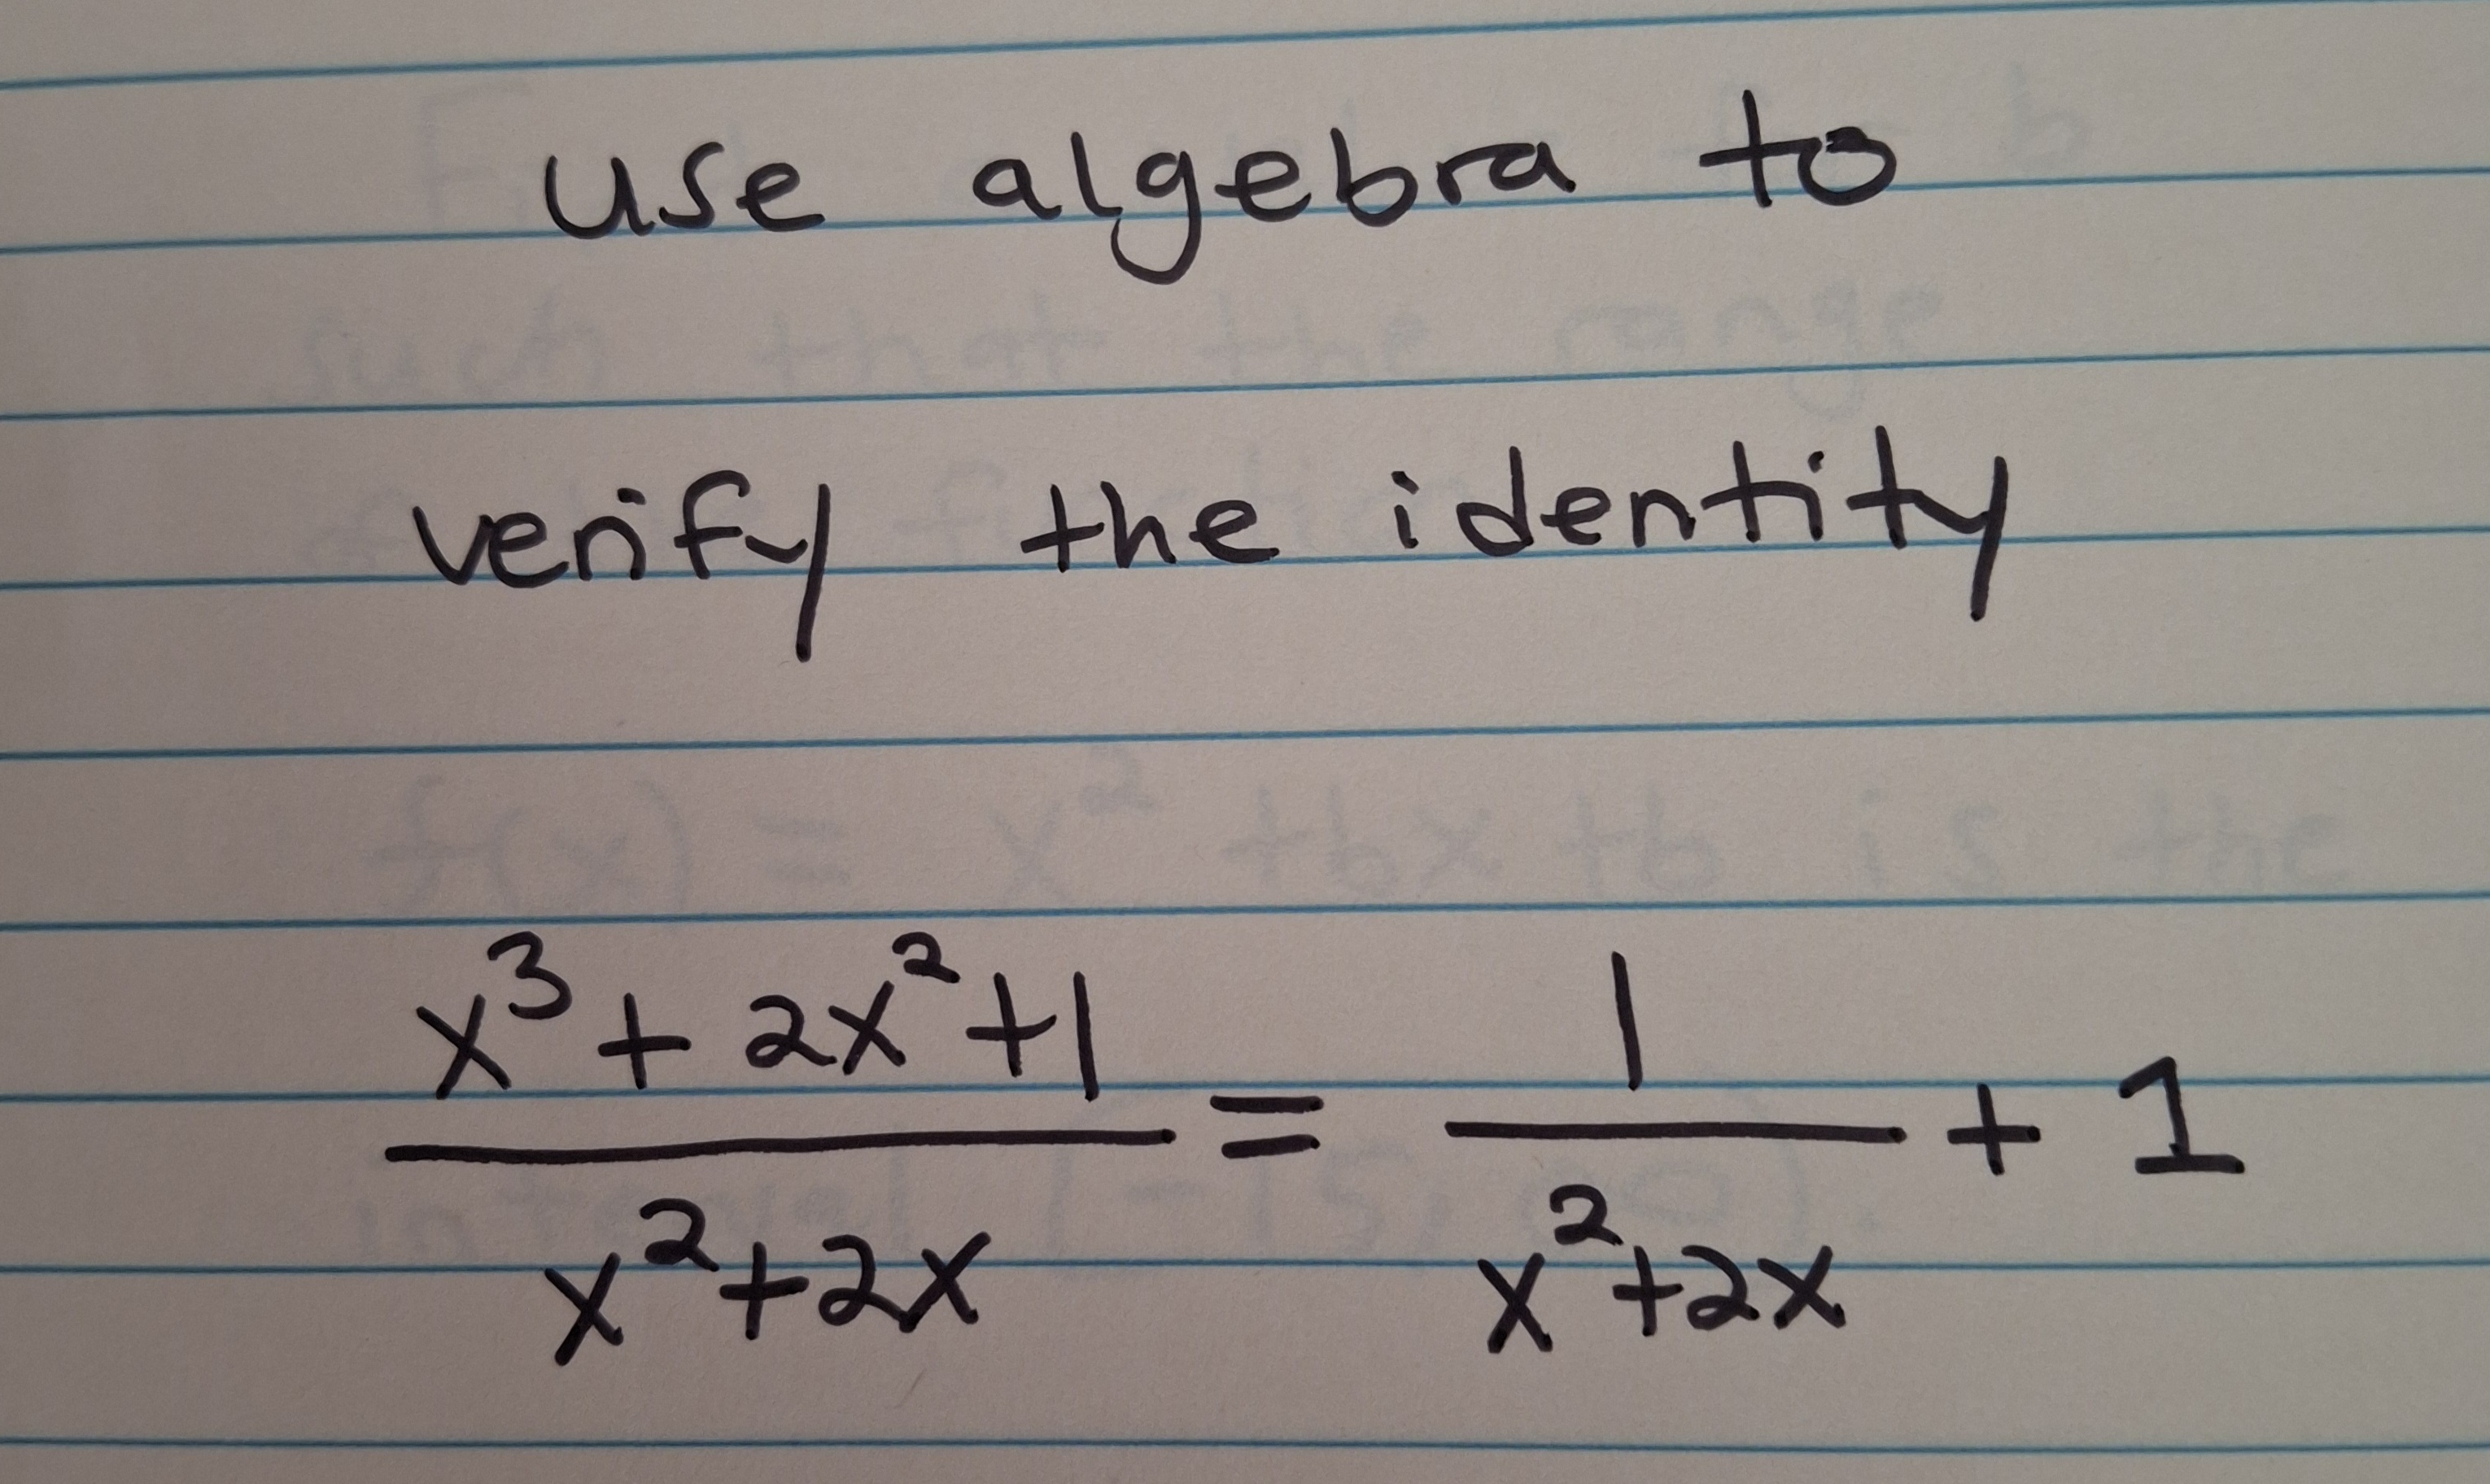 use algebra to
verify the identity
x³ + 2x² + 1 / x² + 2x = 1 / x² + 2x + 1